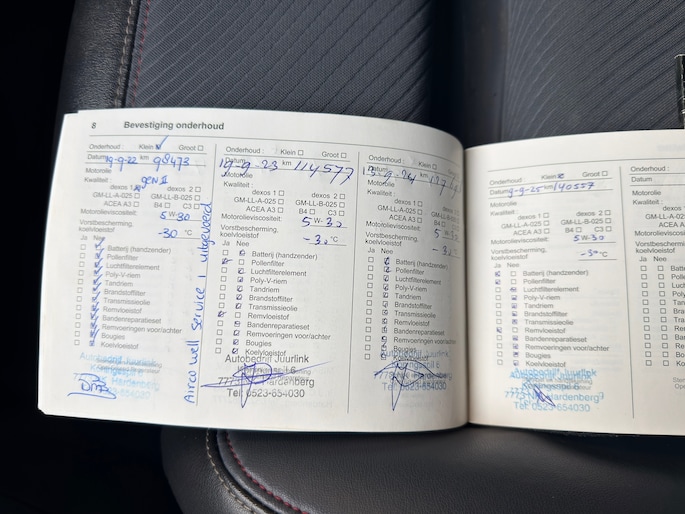 8 Bevestiging onderhoud
Onderhoud : Klein Groot
Datum 19-9-22 km 98473
Motorolie
Kwaliteit : gen II
dexos 1 dexos 2
GM-LL-A-025 GM-LL-B-025
ACEA A3 B4 C3
Motorolieviscositeit: 5W-30
Vorstbescherming.
koelvloeistof -30 °C
Ja Nee
Batterij (handzender)
Pollenfilter
Luchtfilterelement
Poly-V-riem
Tandriem
Brandstoffilter
Transmissieolie
Remvloeistof
Bandenreparatieset
Remvoeringen voor/achter
Bougies
Koelvloeistof
Autobedrijf Juurlink
Hardenberg
Airco well service 1 uitgevoerd
Onderhoud : Klein Groot
Datum 19-9-23 km 114577
Motorolie
Kwaliteit :
dexos 1 dexos 2
GM-LL-A-025 GM-LL-B-025
ACEA A3 B4 C3
Motorolieviscositeit: 5W-30
Vorstbescherming.
koelvloeistof -30 °C
Ja Nee
Batterij (handzender)
Pollenfilter
Luchtfilterelement
Poly-V-riem
Tandriem
Brandstoffilter
Transmissieolie
Remvloeistof
Bandenreparatieset
Remvoeringen voor/achter
Bougies
Koelvloeistof
Autobedrijf Juurlink
Hardenberg
Tel: 0523-654030
Onderhoud : Klein Groot
Datum
Motorolie
Kwaliteit :
dexos 1 dexos 2
GM-LL-A-025 GM-LL-B-025
ACEA A3 B4 C3
Motorolieviscositeit: 5W-30
Vorstbescherming.
koelvloeistof
Ja Nee
Batterij (handzender)
Pollenfilter
Luchtfilterelement
Poly-V-riem
Tandriem
Brandstoffilter
Transmissieolie
Remvloeistof
Bandenreparatieset
Remvoeringen voor/achter
Bougies
Koelvloeistof
Autobedrijf Juurlink
Hardenberg
Tel: 0523-654030
Onderhoud : Klein Groot
Datum 9-9-25 km 140557
Motorolie
Kwaliteit :
dexos 1 dexos 2
GM-LL-A-025 GM-LL-B-025
ACEA A3 B4 C3
Motorolieviscositeit: 5W-30
Vorstbescherming.
koelvloeistof -30 °C
Ja Nee
Batterij (handzender)
Pollenfilter
Luchtfilterelement
Poly-V-riem
Tandriem
Brandstoffilter
Transmissieolie
Remvloeistof
Bandenreparatieset
Remvoeringen voor/achter
Bougies
Koelvloeistof
Autobedrijf Juurlink
Hardenberg
Tel: 0523-654030
Onderhoud :
Datum
Motorolie
Kwaliteit :
GM-LL-A-
Motorolieviscos
Vorstbescherming
koelvloeistof
Ja Nee